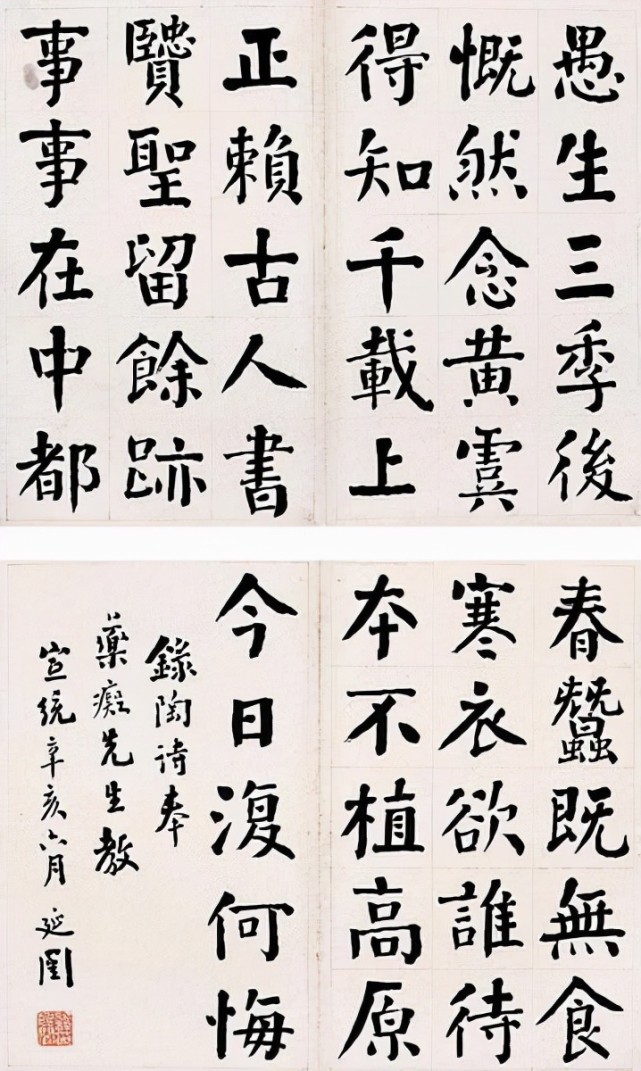 愚生三季後
慨然念黄虞
得知千載上
正賴古人書
賢聖留餘跡
事事在中都
春蠶既無食
寒衣欲誰待
本不植高原
今日復何悔
錄陶詩奉
藥癡先生教
宣統辛亥六月 延闓